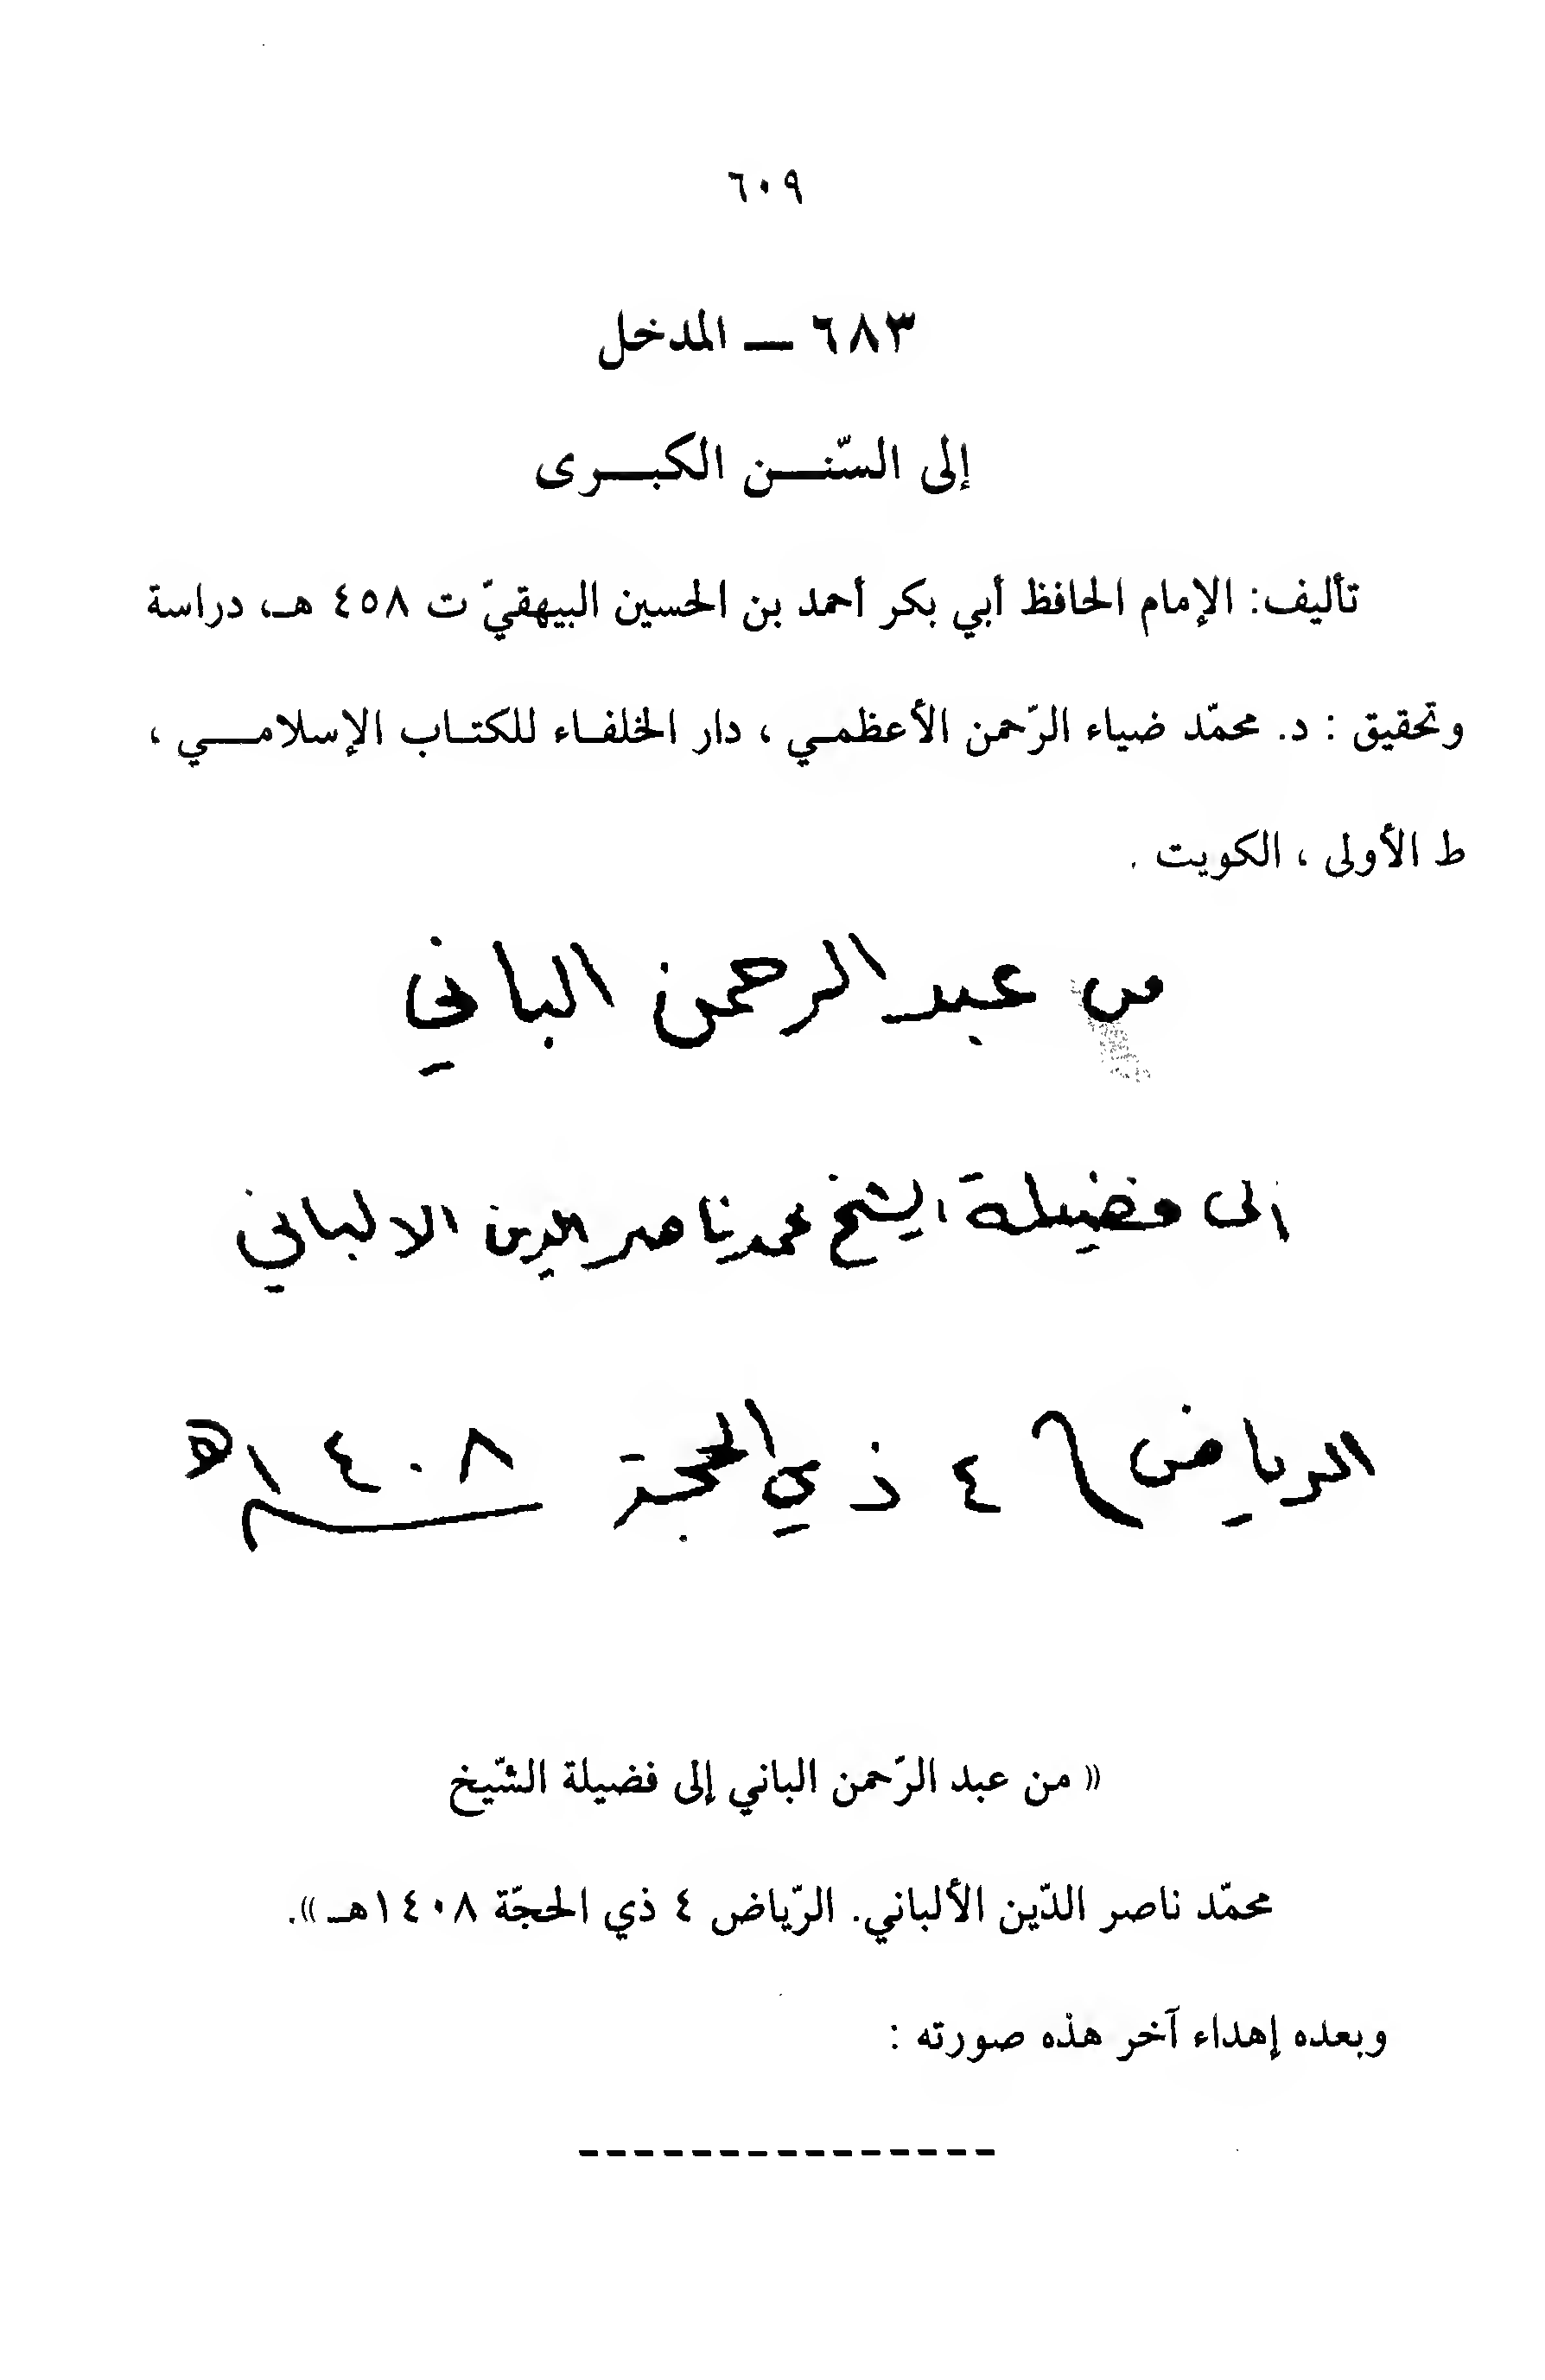 ٦٠٩
٦٨٣ ــ المدخل
إلى السّنــن الكبــرى
تأليف: الإمام الحافظ أبي بكر أحمد بن الحسين البيهقيّ ت ٤٥٨ هـ، دراسة
وتحقيق : د. محمّد ضياء الرّحمن الأعظمـي ، دار الخلفـاء للكتـاب الإسلامــي ،
ط الأولى ، الكويت .
من عبد الرحمن الباني
إلى فضيلة الشيخ محمد ناصر الدين الالباني
الرياض ٤ ذي الحجة ١٤٠٨ه
« من عبد الرّحمن الباني إلى فضيلة الشّيخ
محمّد ناصر الدّين الألباني. الرّياض ٤ ذي الحجّة ١٤٠٨هـ ».
وبعده إهداء آخر هذه صورته :